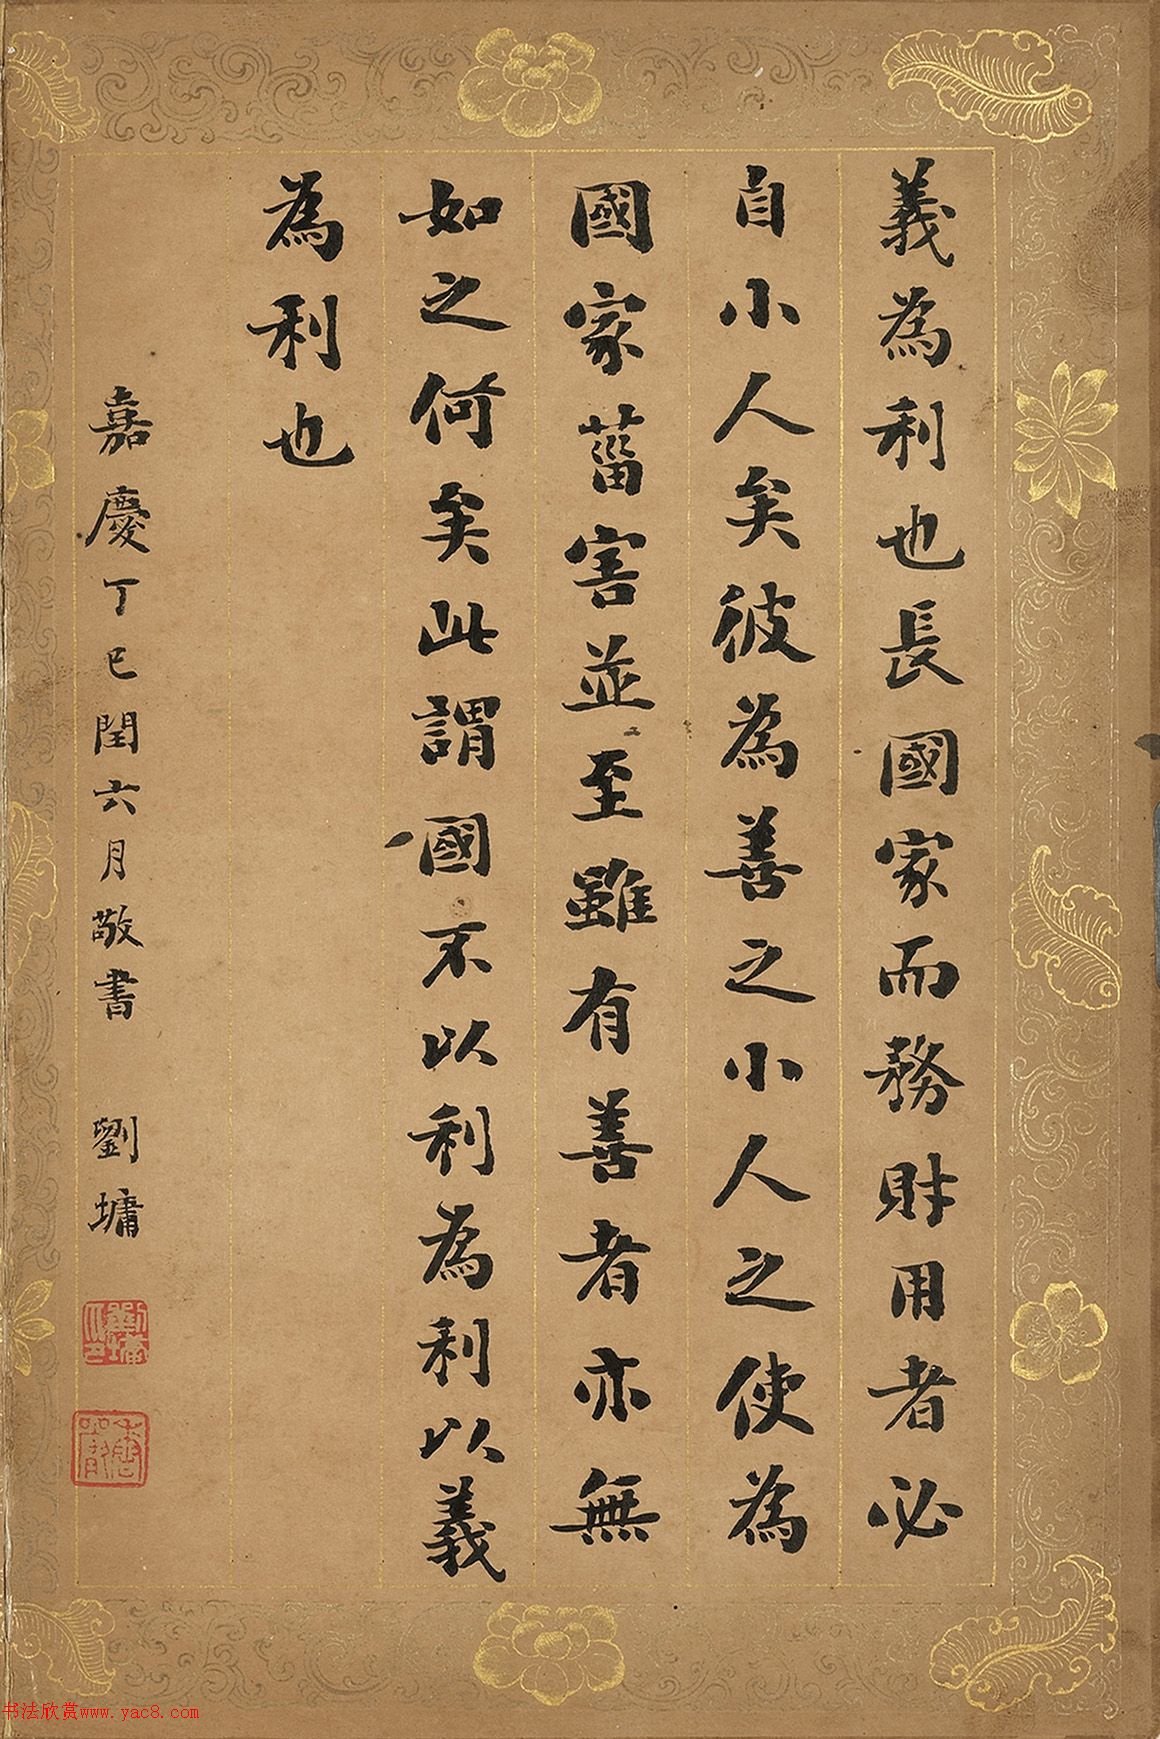 義為利也長國家而務財用者必
自小人矣彼為善之小人之使為
國家菑害並至雖有善者亦無
如之何矣此謂國不以利為利以義
為利也
嘉慶丁巳閏六月敬書 劉墉
劉墉
书法欣赏www.yac8.com